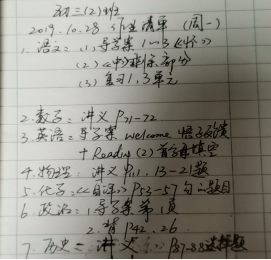 初三(2)班
2019.10.28 作业清单 (周一)
1. 语文: (1) 导学案 1—3
(2) 剩余部分
(3) 复习1,3单元
2. 数学: 讲义 P71-72
3. 英语: 导学案 welcome
+ Reading (2) 首字母填空
4. 物理: 讲义 13-21题
5. 化学: P53-57 题目
6. 政治: 1. 导学案 第1页
2. P42, 26
7. 历史: 讲义 P87-88选择题